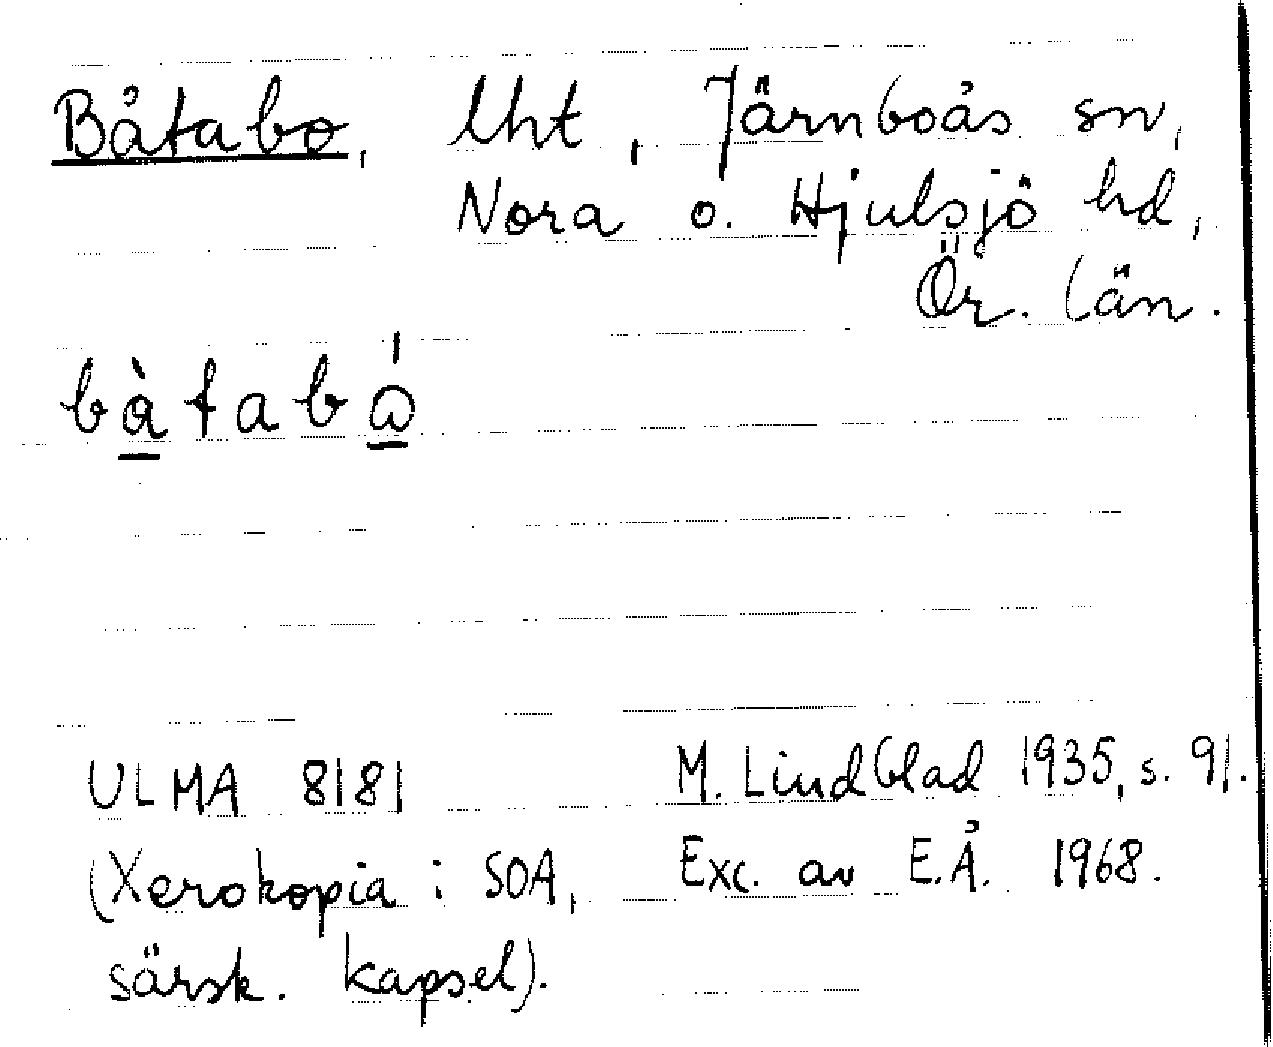 Båtabo, lht, Järnboås sn,
Nora o. Hjulsjö hd,
Ör. län.
bàtabá
ULMA 8181 M. Lindblad 1935, s. 91.
(Xerokopia i SOA, Exc. av E.Å. 1968.
särsk. kapsel).